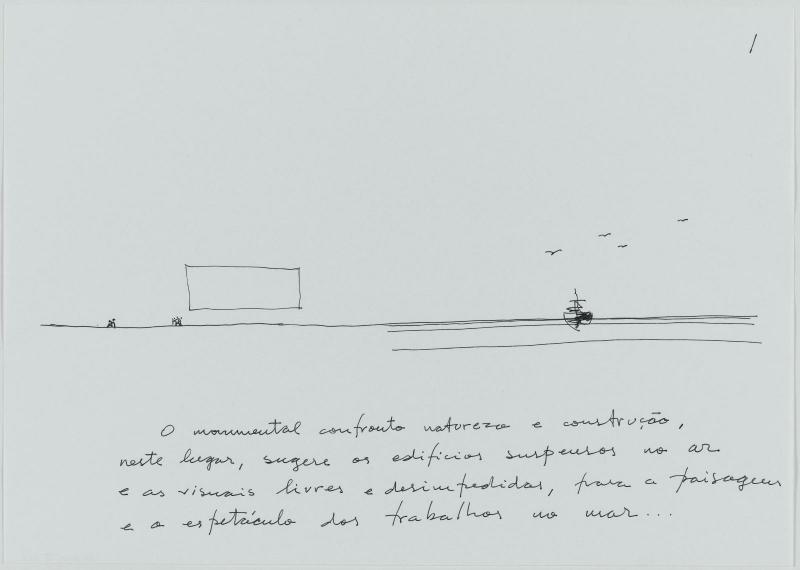 1
O monumental confronto natureza e construção,
neste lugar, sugere os edifícios suspensos no ar
e as visuais livres e desimpedidas, para a paisagem
e o espetáculo dos trabalhos no mar...